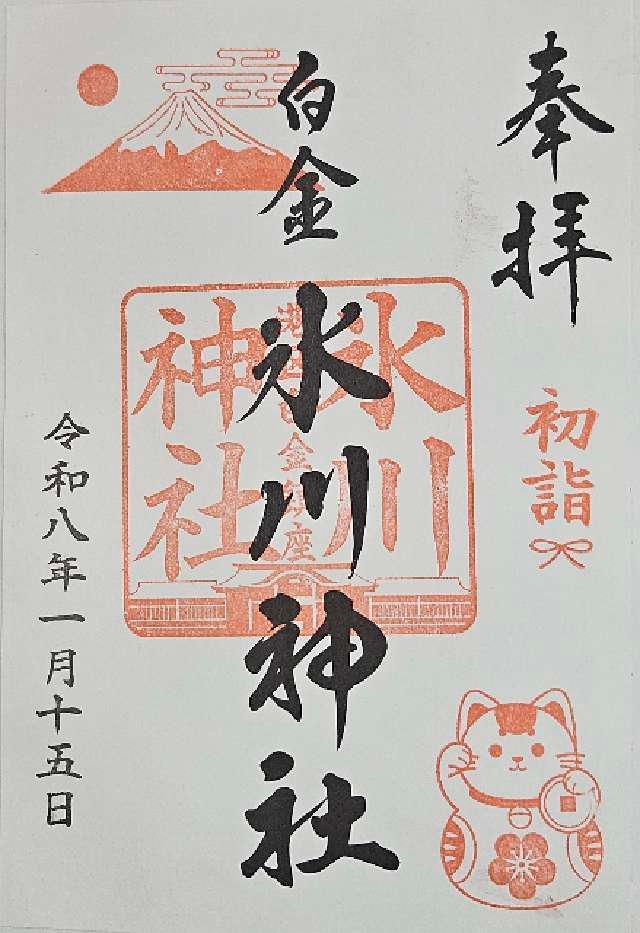 奉拝
初詣
白金
氷川神社
氷川
神社
令和八年一月十五日